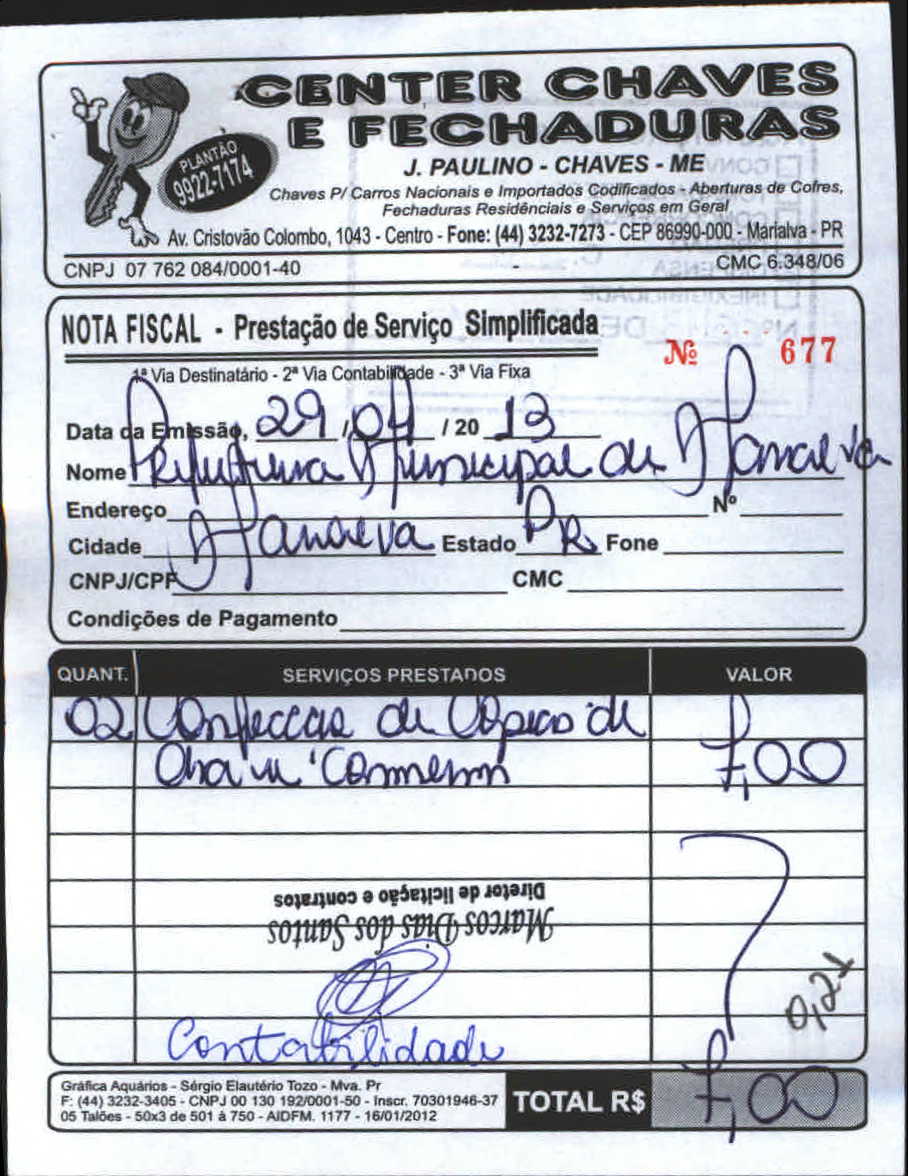 CENTER CHAVES
E FECHADURAS
PLANTÃO
9922-7174
J. PAULINO - CHAVES - ME
Chaves P/ Carros Nacionais e Importados Codificados - Aberturas de Cofres,
Fechaduras Residênciais e Serviços em Geral
Av. Cristovão Colombo, 1043 - Centro - Fone: (44) 3232-7273 - CEP 86990-000 - Marialva - PR
CNPJ 07 762 084/0001-40 CMC 6.348/06
NOTA FISCAL - Prestação de Serviço Simplificada
Nº 677
1ª Via Destinatário - 2ª Via Contabilidade - 3ª Via Fixa
Data da Emissão, 29 / 04 / 20 13
Nome Prefeitura Municipal de Marialva
Endereço Nº
Cidade Marialva Estado PR Fone
CNPJ/CPF CMC
Condições de Pagamento
QUANT. SERVIÇOS PRESTADOS VALOR
02 Confeccao de Copias de
Chave Commum 7,00
Diretor de licitação e contratos
Marcos Dias dos Santos
0,21
Contabilidade
Gráfica Aquários - Sérgio Elautério Tozo - Mva. Pr
F: (44) 3232-3405 - CNPJ 00 130 192/0001-50 - Inscr. 70301946-37
05 Talões - 50x3 de 501 à 750 - AIDFM. 1177 - 16/01/2012
TOTAL R$ 7,00